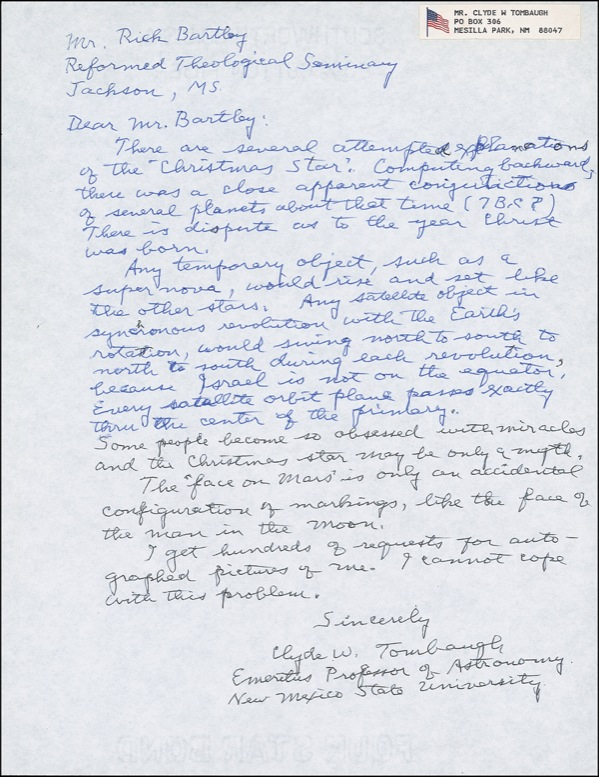 MR. CLYDE W TOMBAUGH
PO BOX 306
MESILLA PARK, NM 88047
Mr. Rick Bartley
Reformed Theological Seminary
Jackson, MS.
Dear Mr. Bartley:
There are several attempted explanations
of the "Christmas Star". Computing backward,
there was a close apparent conjunctions
of several planets about that time (7 B.C?)
There is dispute as to the year Christ
was born.
Any temporary object, such as a
super nova, would rise and set like
the other stars. Any satellite object in
synchronous revolution with the Earth's
rotation, would swing north to south to
north to south during each revolution,
because Israel is not on the equator.
Every satellite orbit plane passes exactly
thru the center of the primary.
Some people become so obsessed with miracles
and the Christmas star may be only a myth.
The "face on Mars" is only an accidental
configuration of markings, like the face of
the man in the moon.
I get hundreds of requests for auto-
graphed pictures of me. I cannot cope
with this problem.
Sincerely
Clyde W. Tombaugh
Emeritus Professor of Astronomy.
New Mexico State University.